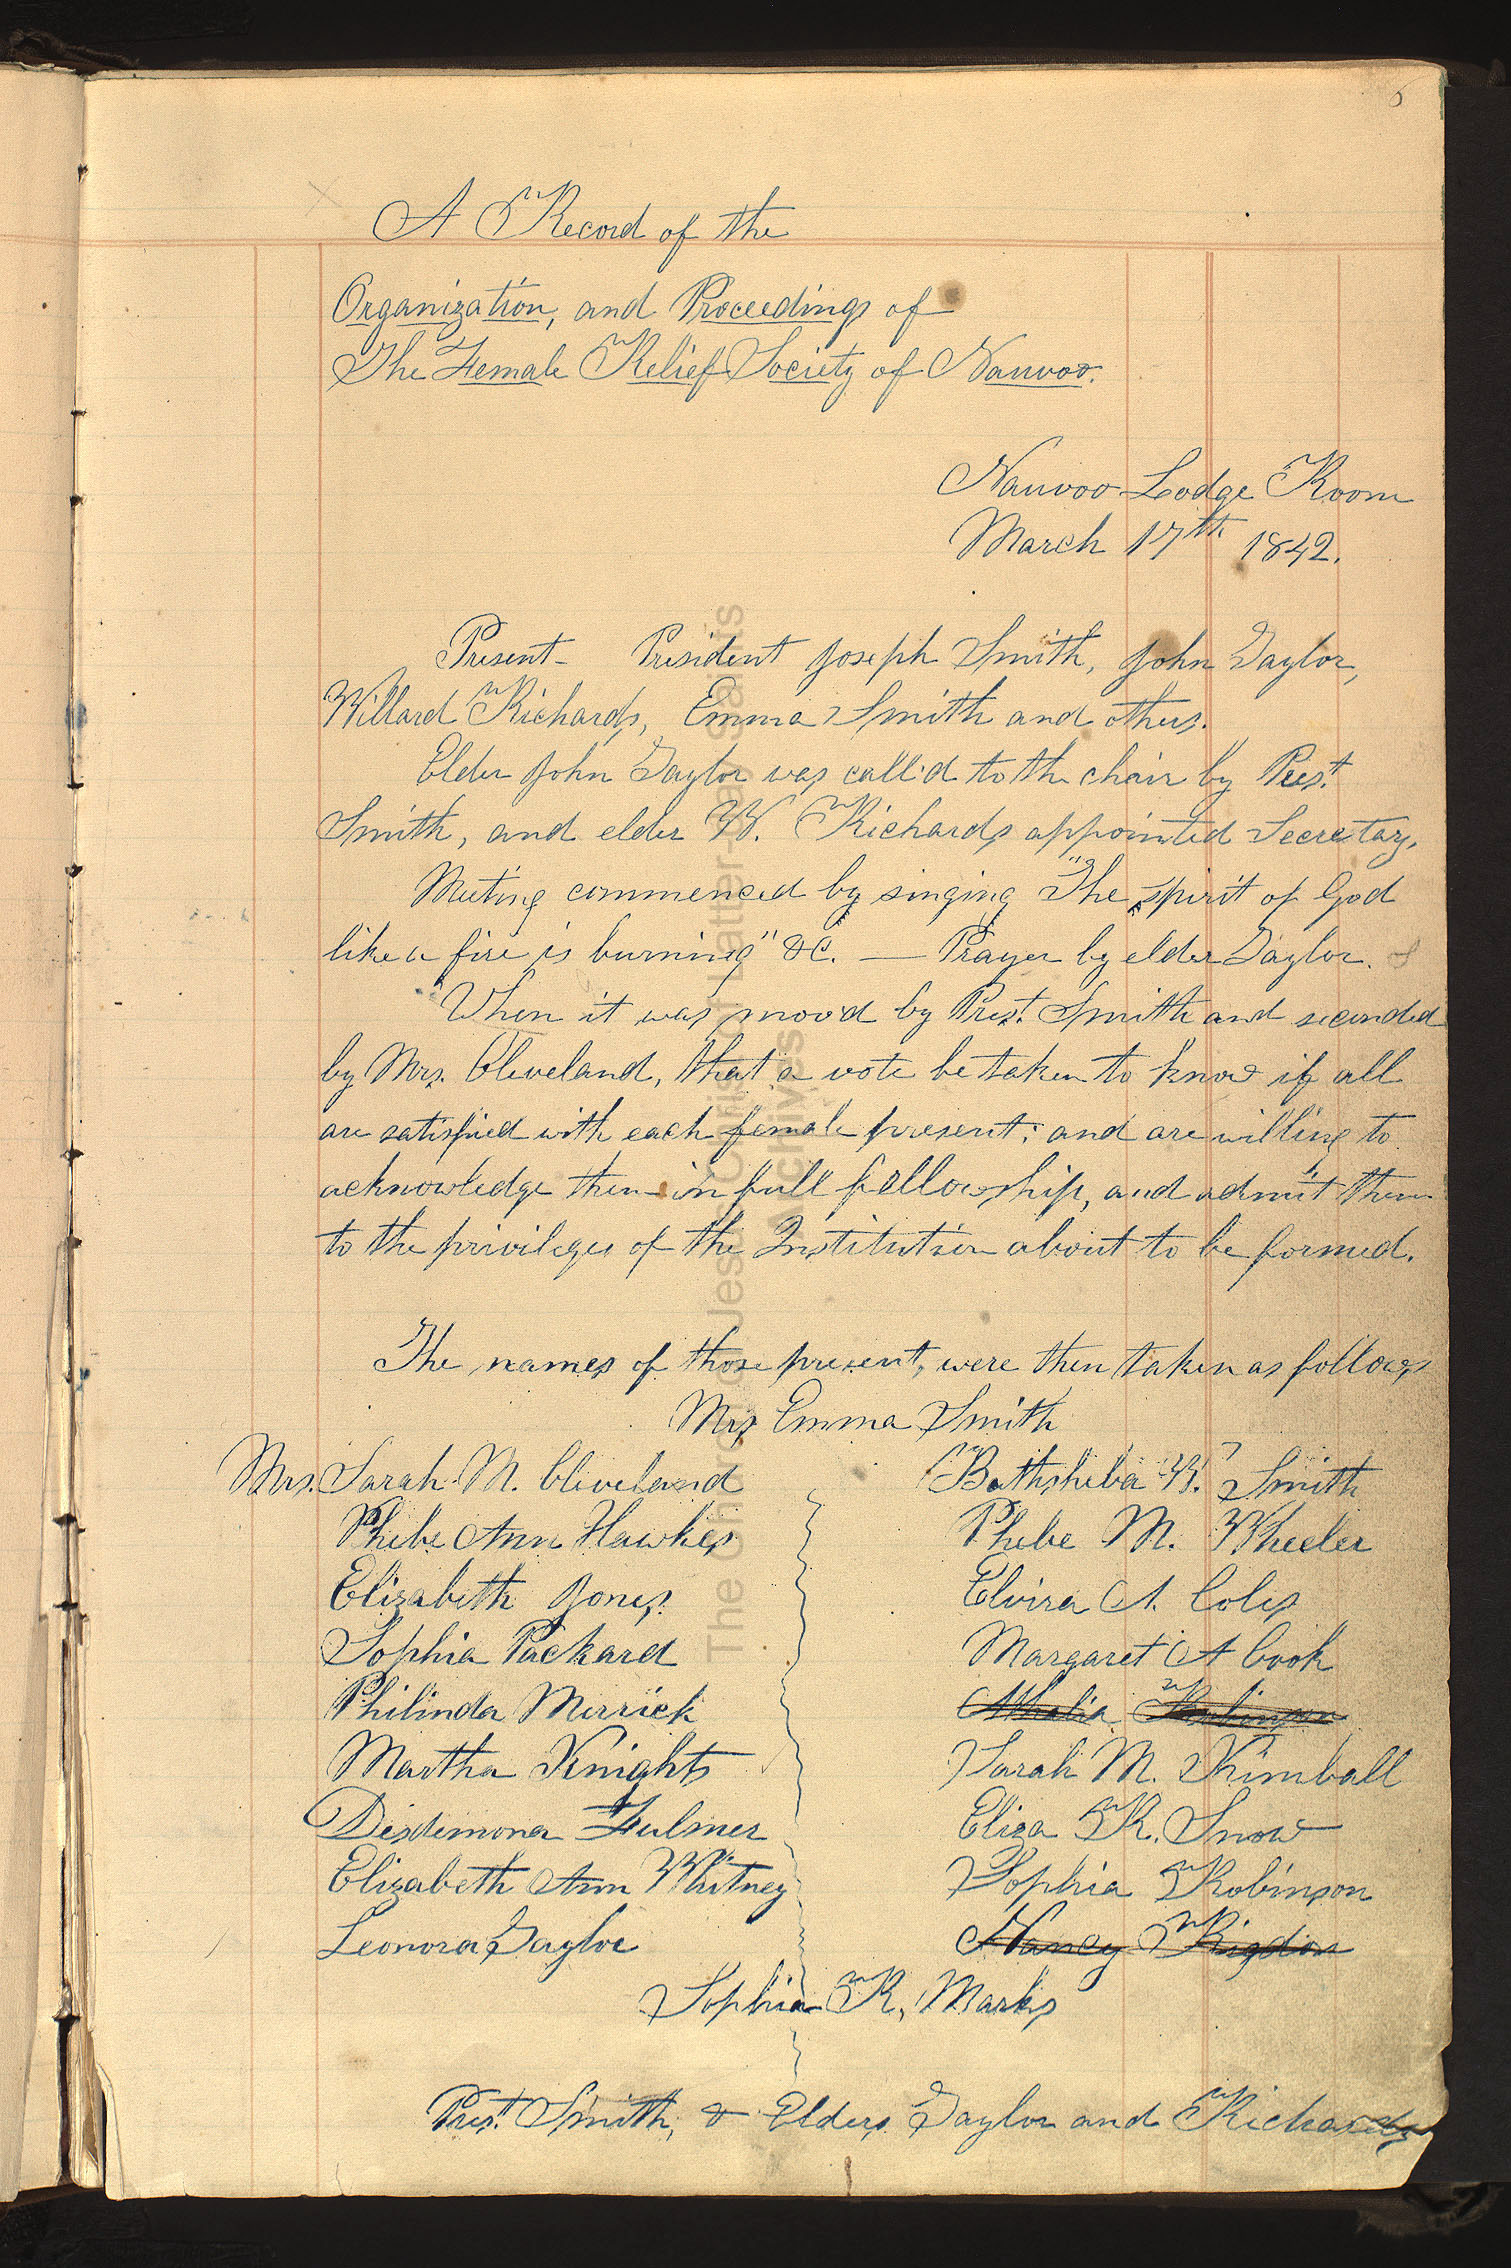 6
A Record of the
Organization, and Proceedings of
The Female Relief Society of Nauvoo.
Nauvoo Lodge Room
March 17th 1842.
Present - President Joseph Smith, John Taylor,
Willard Richards, Emma Smith and others.
Elder John Taylor was call'd to the chair by Prest.
Smith, and elder W. Richards appointed Secretary.
Meeting commenced by singing "The spirit of God
like a fire is burning" &c. — Prayer by elder Taylor.
When it was mov'd by Prest. Smith and seconded
by Mrs. Cleveland, that a vote be taken to know if all
are satisfied with each female present; and are willing to
acknowledge them in full fellowship, and admit them
to the privileges of the Institution about to be formed.
The names of those present, were then taken as follows
Mrs Emma Smith
Mrs. Sarah M. Cleveland Bathsheba W. Smith
Phebe Ann Hawkes Phebe M. Wheeler
Elizabeth Jones. Elvira A. Coles
Sophia Packard Margaret A Cook
Philinda Merrick Athalia Robinson
Martha Knights Sarah M. Kimball
Desdemona Fulmer Eliza R. Snow
Elizabeth Ann Whitney Sophia Robinson
Leonora Taylor Nancy Rigdon
Sophia R. Marks
Prest. Smith, & Elders Taylor and Richards
The Church of Jesus Christ of Latter-day Saints
Archives